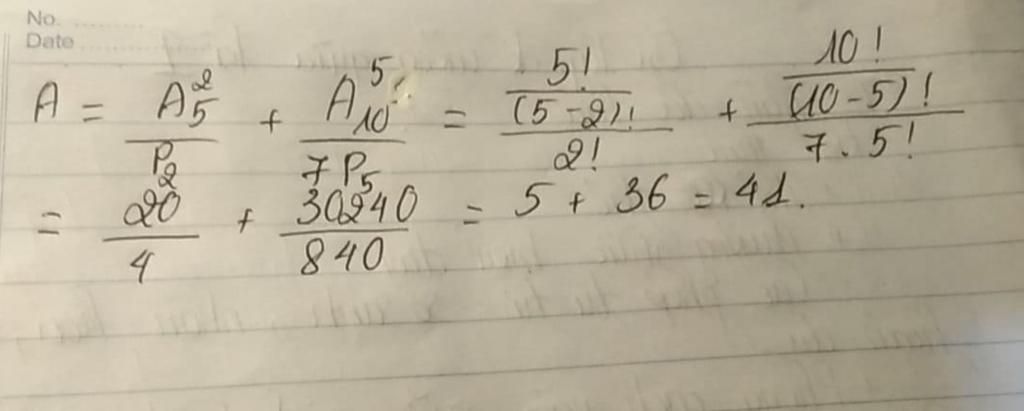 No. ..........
Date ..................
A = A_5^2 / P_2 + A_10^5 / 7P_5 = (5! / (5-2)!) / 2! + (10! / (10-5)!) / 7 . 5!
= 20 / 4 + 30240 / 840 = 5 + 36 = 41.